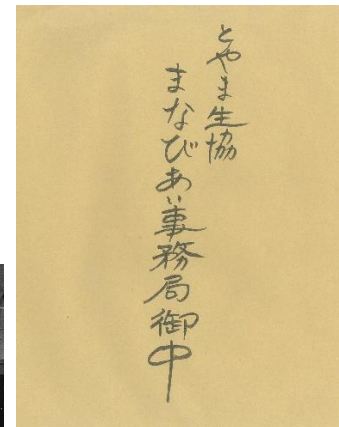 とやま生協
まなびあい事務局御中